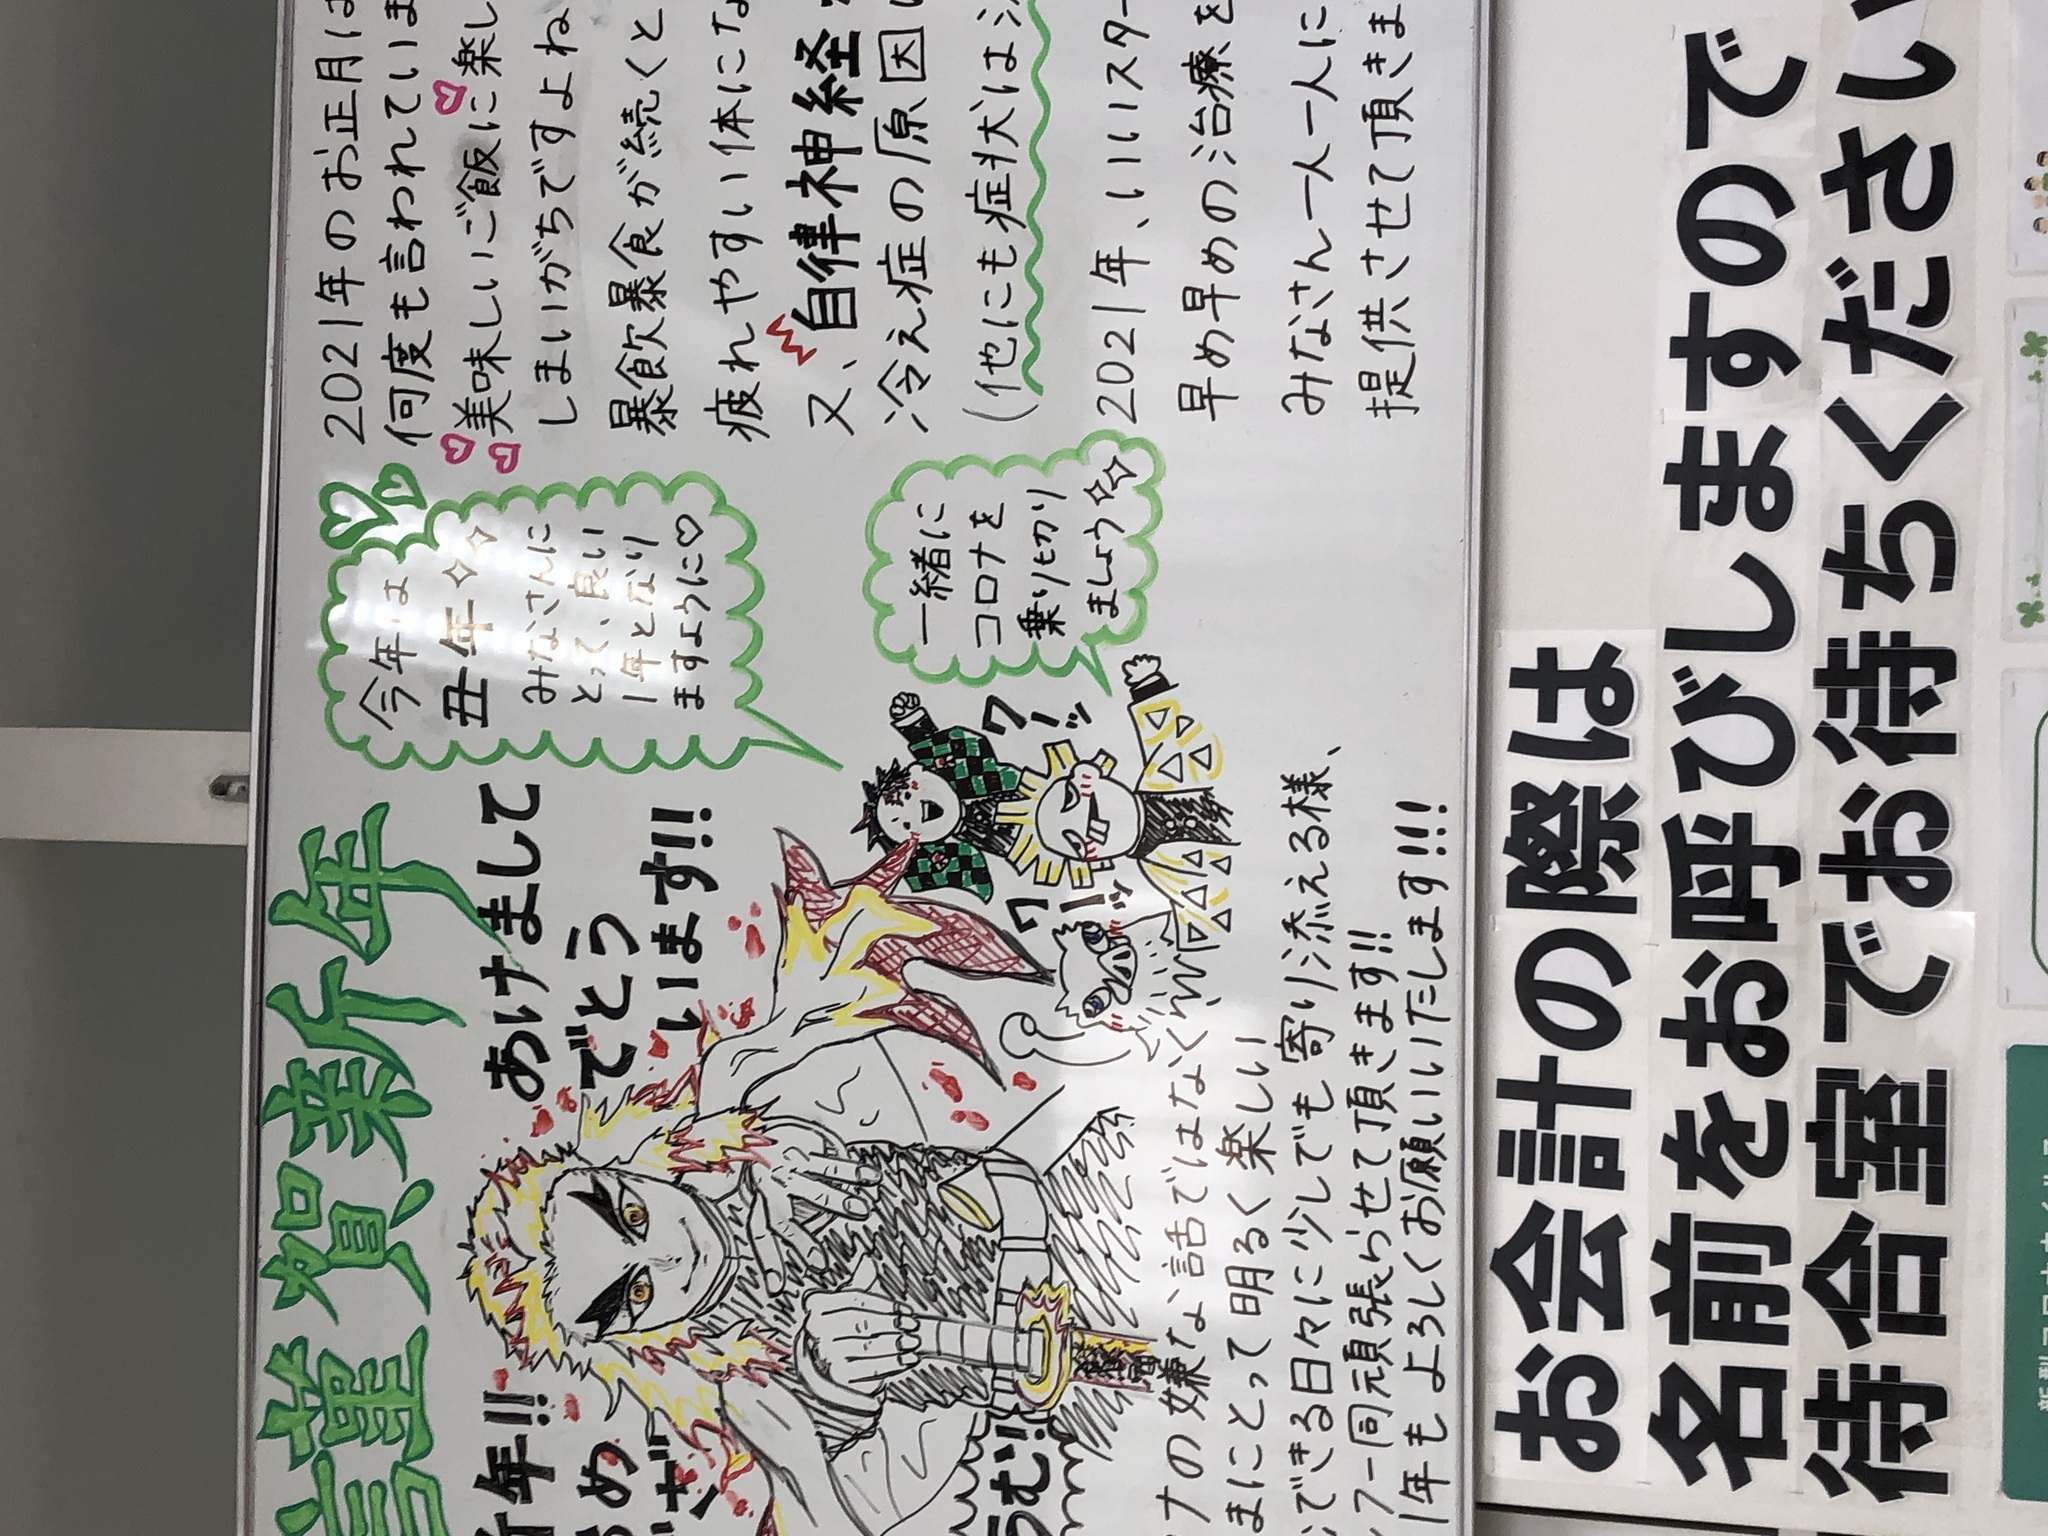 謹賀新年
年!!
あけまして
め
でとう
ざ
います!!
今年は
丑年
みなさんに
とって、良い
1年となり
ますように♡
一緒に
コロナを
乗り切り
ましょう
ワーッ
ワーッ
うむ!!
ナの嫌な話ではなく、
まにとって明るく楽しい
できる日々に少しでも寄り添える様、
フ一同頑張らせて頂きます!!
1年もよろしくお願いいたします!!!
2021年のお正月は
何度も言われていま
美味しいご飯に楽し
しまいがちですよね
暴飲暴食が続くと
疲れやすい体にな
又、自律神経
冷え症の原因
(他にも症状は
2021年、いいスター
早め早めの治療を
みなさん一人一人に
提供させて頂きま
お会計の際は
名前をお呼びしますので
待合室でお待ちください